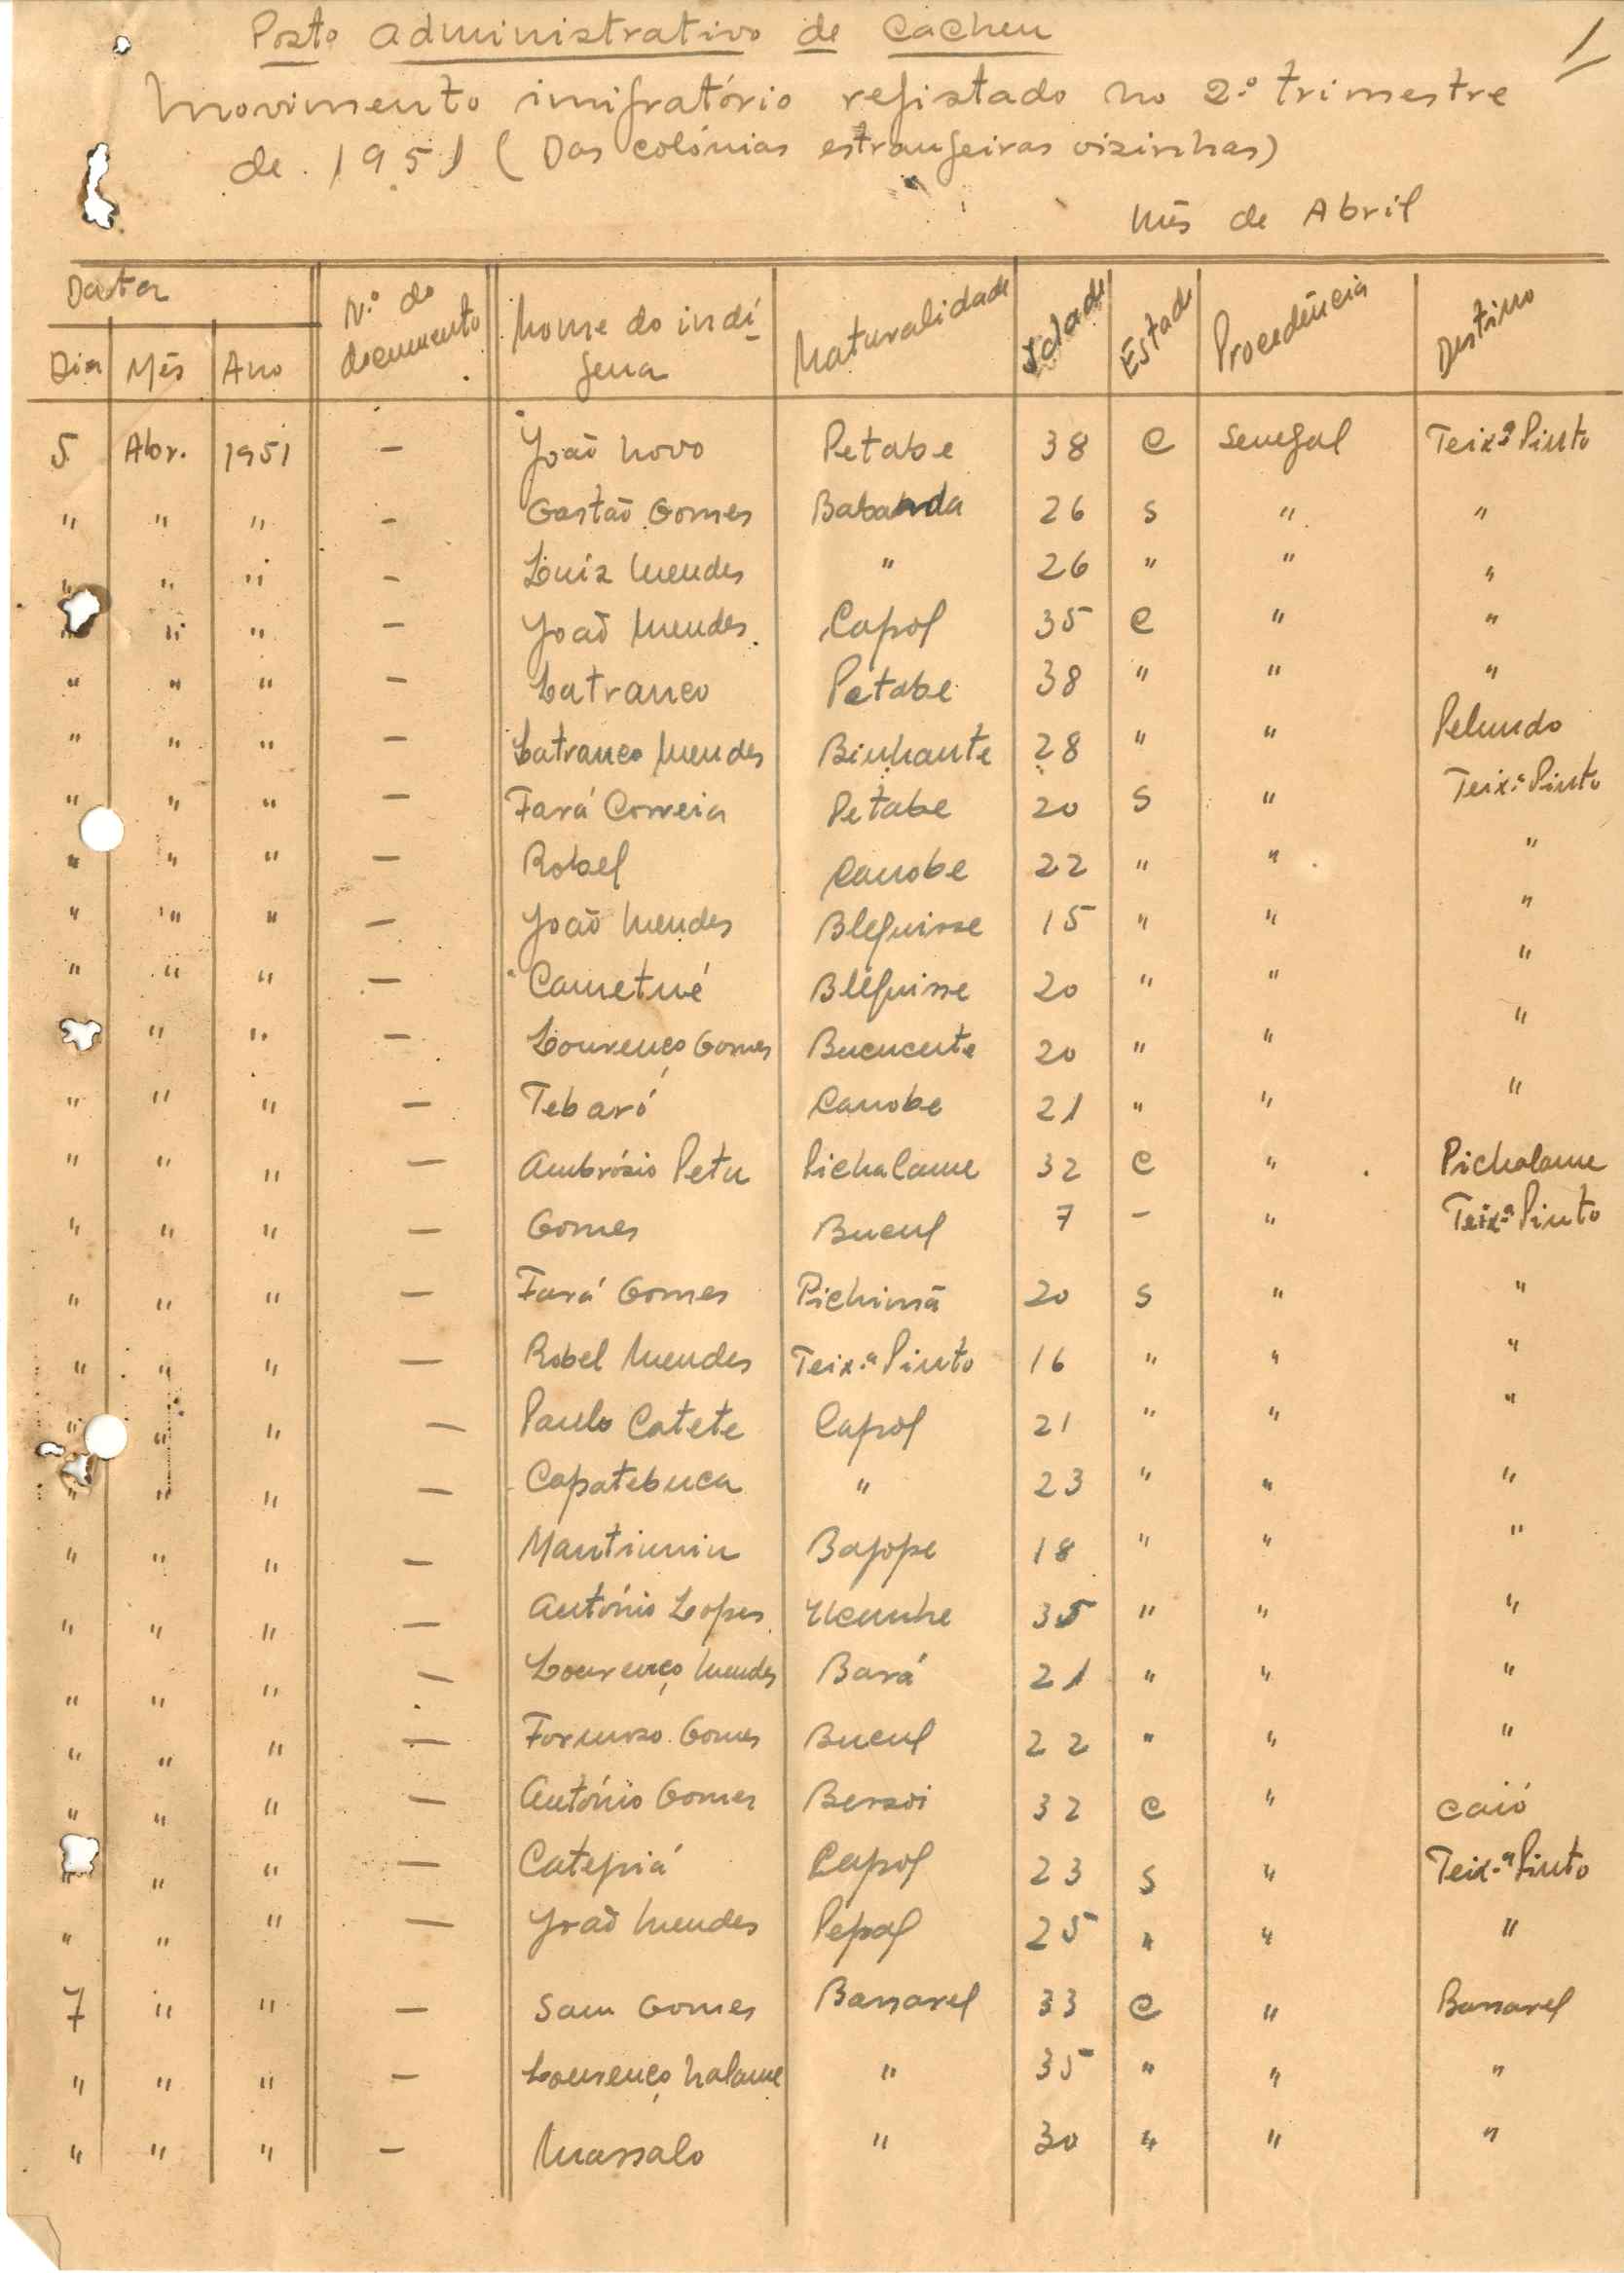 Posto Administrativo de Cacheu
1
Movimento imigratório registado no 2.º trimestre
de 1951 (Das colónias estrangeiras vizinhas)
Mês de Abril
Data
Dia Mês Ano N.º do documento Nome do indígena Naturalidade Idade Estado Procedência Destino
5 Abr. 1951 — João Novo Petabe 38 C Senegal Teix.ª Pinto
" " " — Gastão Gomes Babanda 26 S " "
" " " — Luiz Mendes " 26 " " "
" " " — João Mendes Capol 35 C " "
" " " — Latranco Petabe 38 " " "
" " " — Latranco Mendes Binhante 28 " " Pelundo
" " " — Fará Correia Petabe 20 S " Teix.ª Pinto
" " " — Robel Canobe 22 " " "
" " " — João Mendes Bleguisse 15 " " "
" " " — Cametué Bleguisse 20 " " "
" " " — Lourenço Gomes Bucucute 20 " " "
" " " — Tebaró Canobe 21 " " "
" " " — Ambrósio Petu Pichalame 32 C " Pichalame
" " " — Gomes Bucul 7 — " Teix.ª Pinto
" " " — Fará Gomes Pichimã 20 S " "
" " " — Robel Mendes Teix.ª Pinto 16 " " "
" " " — Paulo Catete Capol 21 " " "
" " " — Capatebuca " 23 " " "
" " " — Bajope 18 " " "
" " " — António Lopes Ucunhe 35 " " "
" " " — Lourenço Mendes Bará 21 " " "
" " " — Formoso Gomes Bucul 22 " " "
" " " — António Gomes Bersoi 32 C " Caió
" " " — Catepiá Capol 23 S " Teix.ª Pinto
" " " — João Mendes Pepal 25 " " "
7 " " — Sam Gomes Bassarel 33 C " Bassarel
" " " — Lourenço Nalame " 35 " " "
" " " — Massalo " 30 " " "